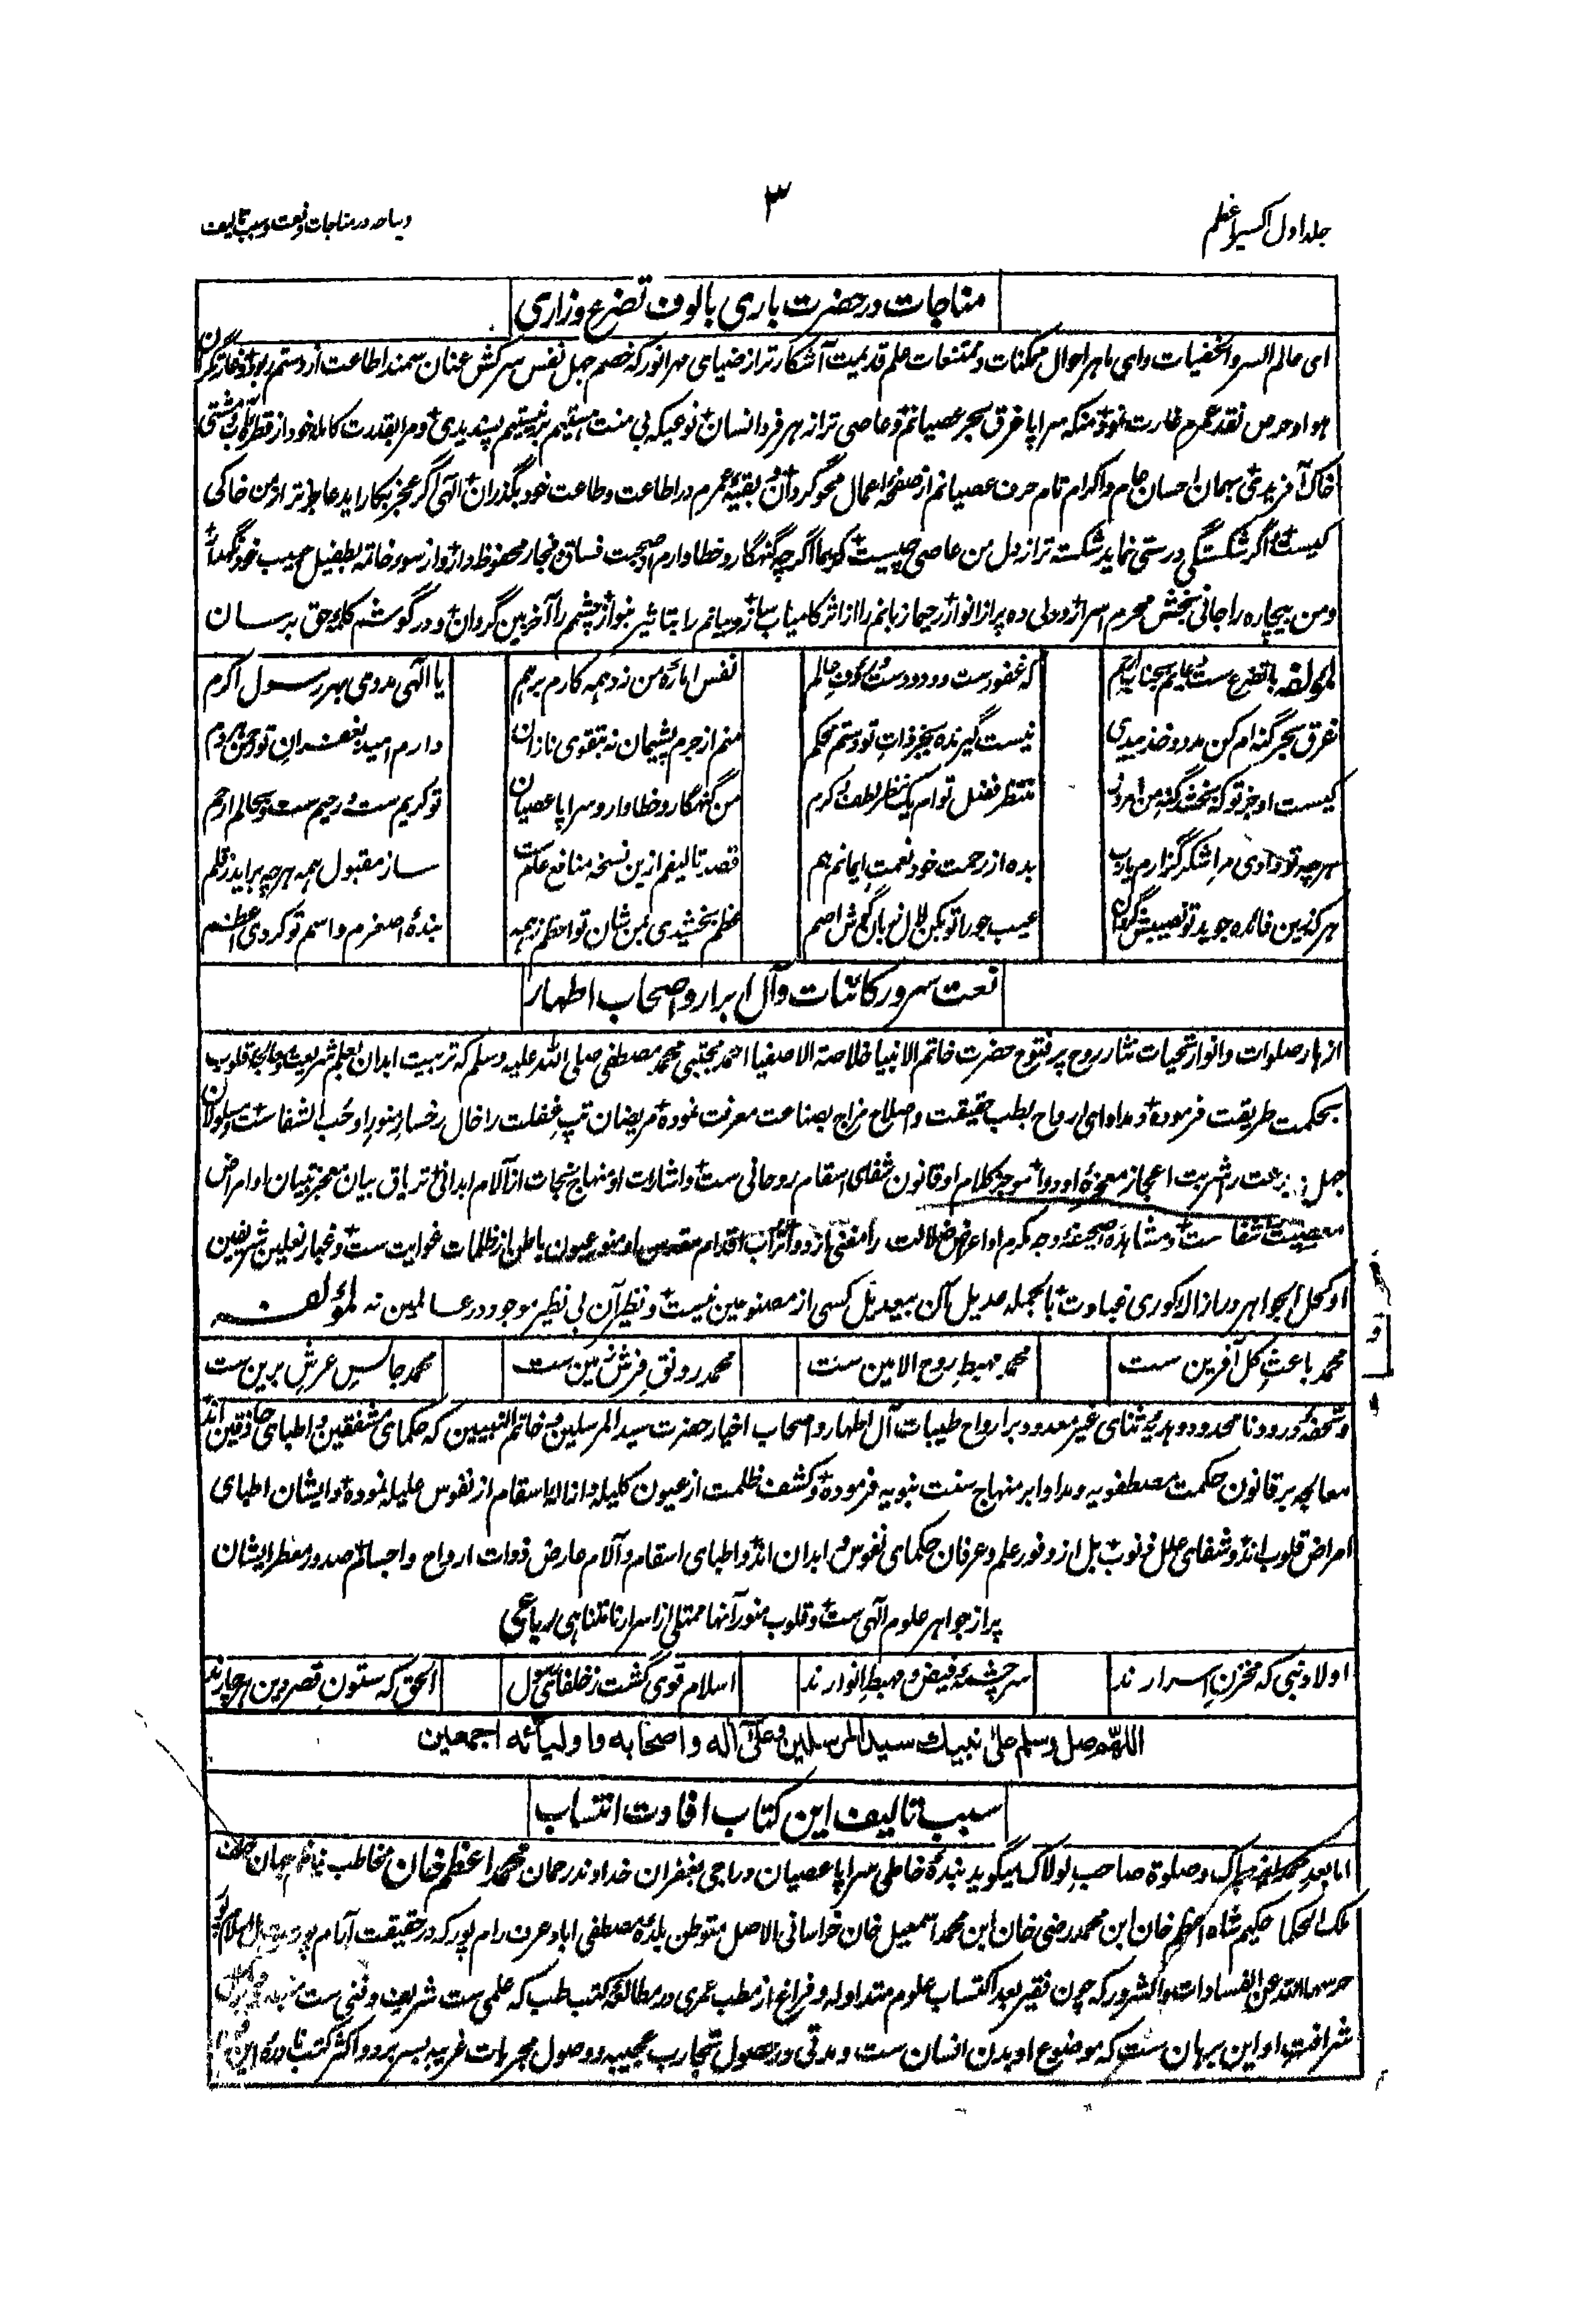 جلد اول اکسیر اعظم
۳
دیباچه در مناجات و نعت و سبب تالیف
مناجات در حضرت باری بالوف تضرع و زاری
ای عالم السر والخفیات وای ماهر احوال ممکنات و ممتنعات علم قدیمت آشکار تر از ضیای مهر انور که خصم جهل نفس سرکش عنان سمند اطاعت از دستم ربوده
هوا و حرص نقد عمرم غارت نمود منکه سراپا غرق بحر عصیانم و عاصی تر از هر فرد انسان نوعیکه بی منت هستیم بر نیستیم پسندیدی و مرا بقدرت کامله خود از قطره آب و مشتی
خاک آفریدی بهمان احسان عام و اکرام تام حرف عصیانم از صفحه اعمال محو گردان و بقیه عمرم در اطاعت و طاعت خود بگذران الهی اگر عجز بکار اید عاجز تر از من خاکی
کیست و اگر شکستگی درستی نماید شکسته تر از دل من عاصی چیست کریما اگرچه گنهگار و خطا وارم از صحبت فساق و فجار محفوظ دار و از سوء خاتمه بطفیل حبیب خود نگهدار
و من بیچاره را جانی بخش محرم اسرار و دلی ده پر از انوار رحیما زبانم را از اثر کامیاب ساز و بیانم را بتاثیر بنواز چشمم را آخر بین گردان و در گوشم کلمه حق برسان
لمؤلفه با تضرع ست که غفور ست و ودود ست نفس اماره من زد همه کارم برهم یا الهی مددی بهر رسول اکرم
غرق بحر گنه ام کن مدد و خذ بیدی نیست گیرنده بجز ذات تو دستم محکم منم از جرم پشیمان نه بتقوی نازان دارم امید بغفران تو
کیست او جز تو که بخشد گنه من امروز منتظر فضل توام یک نظر لطف و کرم من گنهگار و خطا وار و سراپا عصیان تو کریم ست و رحیم ست بحالم ارحم
هر چه تو دادی مرا شکر گزارم یارب بده از رحمت خود نعمت ایمانم هم قصد تالیفم ازین نسخه منافع عام ست ساز مقبول همه هر چه براید ز قلم
هر که زین فائده جوید تو نصیبش گردان عیب جو را تو بکن لال زبان گوش اصم عظم بخشیدی بمن شان تو اعظم ز همه بنده اصغرم و اسم تو کردی اعظم
نعت سرور کائنات و آل ابرار و اصحاب اطهار
ازهار صلوات و انوار تحیات نثار روح پر فتوح حضرت خاتم الانبیا خلاصة الاصفیا احمد مجتبی محمد مصطفی صلی الله علیه وسلم که تربیت ابدان بعلم شریعت و معالجه قلوب
بحکمت طریقت فرموده و مداوای ارواح بطب حقیقت و اصلاح مزاج بصناعت معرفت نموده مریضان تپ غفلت را خال رخسار منور او حب الشفاست و مسلولان
جهل را شربت اعجاز معجزه او دوا موجز کلام او قانون شفای اسقام روحانی ست و اشارات او منهاج نجات از آلام ابدانی تریاق بیان معجز تبیان او امراض
معصیت شفا ست و مشاهده صحیفه وجه مکرم او اعراض ضلالت را مغنی از دوا تراب اقدام مقدس او منور عیون باطن از ظلمات غوایت ست و غبار نعلین شریفین
او کحل الجواهر در ازاله کوری غباوت بالجمله عدیل آن بیعدیل کسی از مصنوعین نیست و نظیر آن بی نظیر موجود در عالمین نه لمؤلفه
محمد باعث کل آفرین ست محمد مهبط روح الامین ست محمد رونق فرش زمین ست محمد جالس عرش برین ست
و تحفه درود نامحدود و هدیه ثنای غیر معدود بر ارواح طیبات آل اطهار و اصحاب اخیار حضرت سید المرسلین و خاتم النبیین که حکمای مشفقین و اطبای حاذقین اند
معالجه بر قانون حکمت مصطفویه و مداوا بر منهاج سنت نبویه فرموده و کشف ظلمت از عیون کلیله و ازاله اسقام از نفوس علیله نموده و ایشان اطبای
امراض قلوب اند و شفای علل ذنوب بل از وفور علم و عرفان حکمای نفوس و ابدان اند و اطبای اسقام و آلام عارض ذوات ارواح و اجسام صدور معطر ایشان
پر از جواهر علوم الهی ست و قلوب منور آنها ممتلی از اسرار نامتناهی رباعی
اولاد نبی که مخزن اسرارند سرچشمه فیض و مهبط انوارند اسلام قوی گشت ز خلفای رسول الحق که ستون قصر دین هر چارند
اللهم صل وسلم علی نبیك سید المرسلین وعلی آله واصحابه واولیائه اجمعین
سبب تالیف این کتاب افادت انتساب
اما بعد حمد ایزد پاک و صلوة صاحب لولاک میگوید بنده خاطی سراپا عصیان و راجی بغفران خداوند رحمان محمد اعظم خان مخاطب بناظم جهان
ملک الحکما حکیم شاه اعظم خان ابن محمد رضی خان ابن محمد اسمعیل خان خراسانی الاصل متوطن بلده مصطفی اباد عرف رام پور که در حقیقت آرام پور
حرسها الله عن الفسادات والشرور که چون فقیر بعد اکتساب علوم متداوله و فراغ از مطب عمری در مطالعه کتب طب که علمی ست شریف و فنی ست
شرافت او این برهان ست که موضوع او بدن انسان ست و مدتی در حصول تجارب عجیبه و وصول مجربات غریبه بسر برد و اکثر کتب نادره این فن